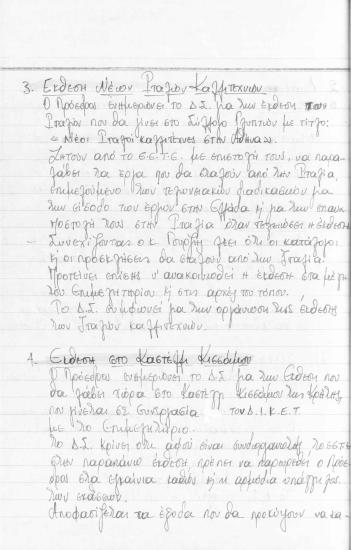 3. Εκθεση Νέων Ιταλών Καλλιτεχνών
Ο Πρόεδρος ενημερώνει το Δ.Σ. για την έκθεση των
Ιταλών που θα γίνει στο Σύλλογο Γλυπτών με τίτλο:
« Νέοι Ιταλοί καλλιτέχνες στην Αθήνα».
Ζητούν από το Ε.Ε.Τ.Ε. με επιστολή τους, να παρα-
λάβει τα έργα που θα σταλούν από την Ιταλία,
επιμελούμενο των τελωνειακών διαδικασιών για
την είσοδο των έργων στην Ελλάδα ή για την επανα-
ποστολή τους στην Ιταλία όταν τελειώσει η έκθεση
- Συνεχίζοντας ο κ. λέει ότι οι κατάλογοι
ή οι προσκλήσεις θα σταλούν από την Ιταλία.
Προτείνει επίσης ν' ανακοινωθεί η έκθεση στα μέλη
του Επιμελητηρίου ή στις αρχές του τόπου.
Το Δ.Σ. συμφωνεί για την οργάνωση της έκθεσης
των Ιταλών καλλιτεχνών.
4. Εκθεση στο Καστέλλι Κισσάμου
Ο Πρόεδρος ενημερώνει το Δ.Σ. για την Εκθεση που
θα λάβει χώρα στο Καστέλλι Κισσάμου της Κρήτης,
που γίνεται σε Συνεργασία του Δ.Ι.Κ.Ε.Τ
με το Επιμελητήριο.
Το Δ.Σ. κρίνει ότι αφού είναι συνδιοργανωτής το ΕΕΤΕ
στην παραπάνω έκθεση πρέπει να παρευρεθεί ο Πρόε-
δρος στα εγκαίνια καθώς ή η αρμόδια υπάλληλος
των εκθέσεων.
Αποφασίζεται τα έξοδα που θα προκύψουν να κα-